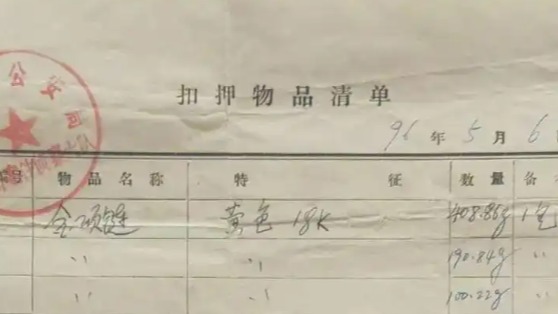 公安局
扣押物品清单
96年5月6
编号 物品名称 特征 数量 备
金项链 黄色 18K 408.86g 1包
〃 〃 190.84g 〃
〃 〃 100.22g 〃